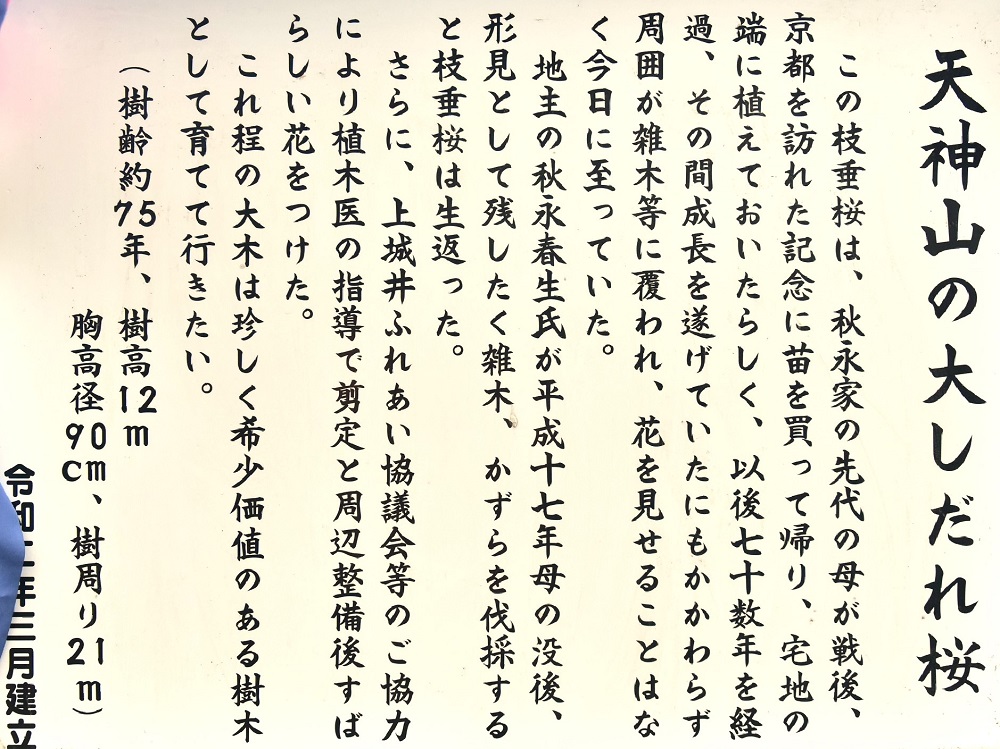 天神山の大しだれ桜
この枝垂桜は、秋永家の先代の母が戦後、
京都を訪れた記念に苗を買って帰り、宅地の
端に植えておいたらしく、以後七十数年を経
過、その間成長を遂げていたにもかかわらず
周囲が雑木等に覆われ、花を見せることはな
く今日に至っていた。
地主の秋永春生氏が平成十七年母の没後、
形見として残したく雑木、かずらを伐採する
と枝垂桜は生返った。
さらに、上城井ふれあい協議会等のご協力
により植木医の指導で剪定と周辺整備後すば
らしい花をつけた。
これ程の大木は珍しく希少価値のある樹木
として育てて行きたい。
（樹齢約75年、樹高12m
胸高径90cm、樹周り21m）
令和二年三月建立